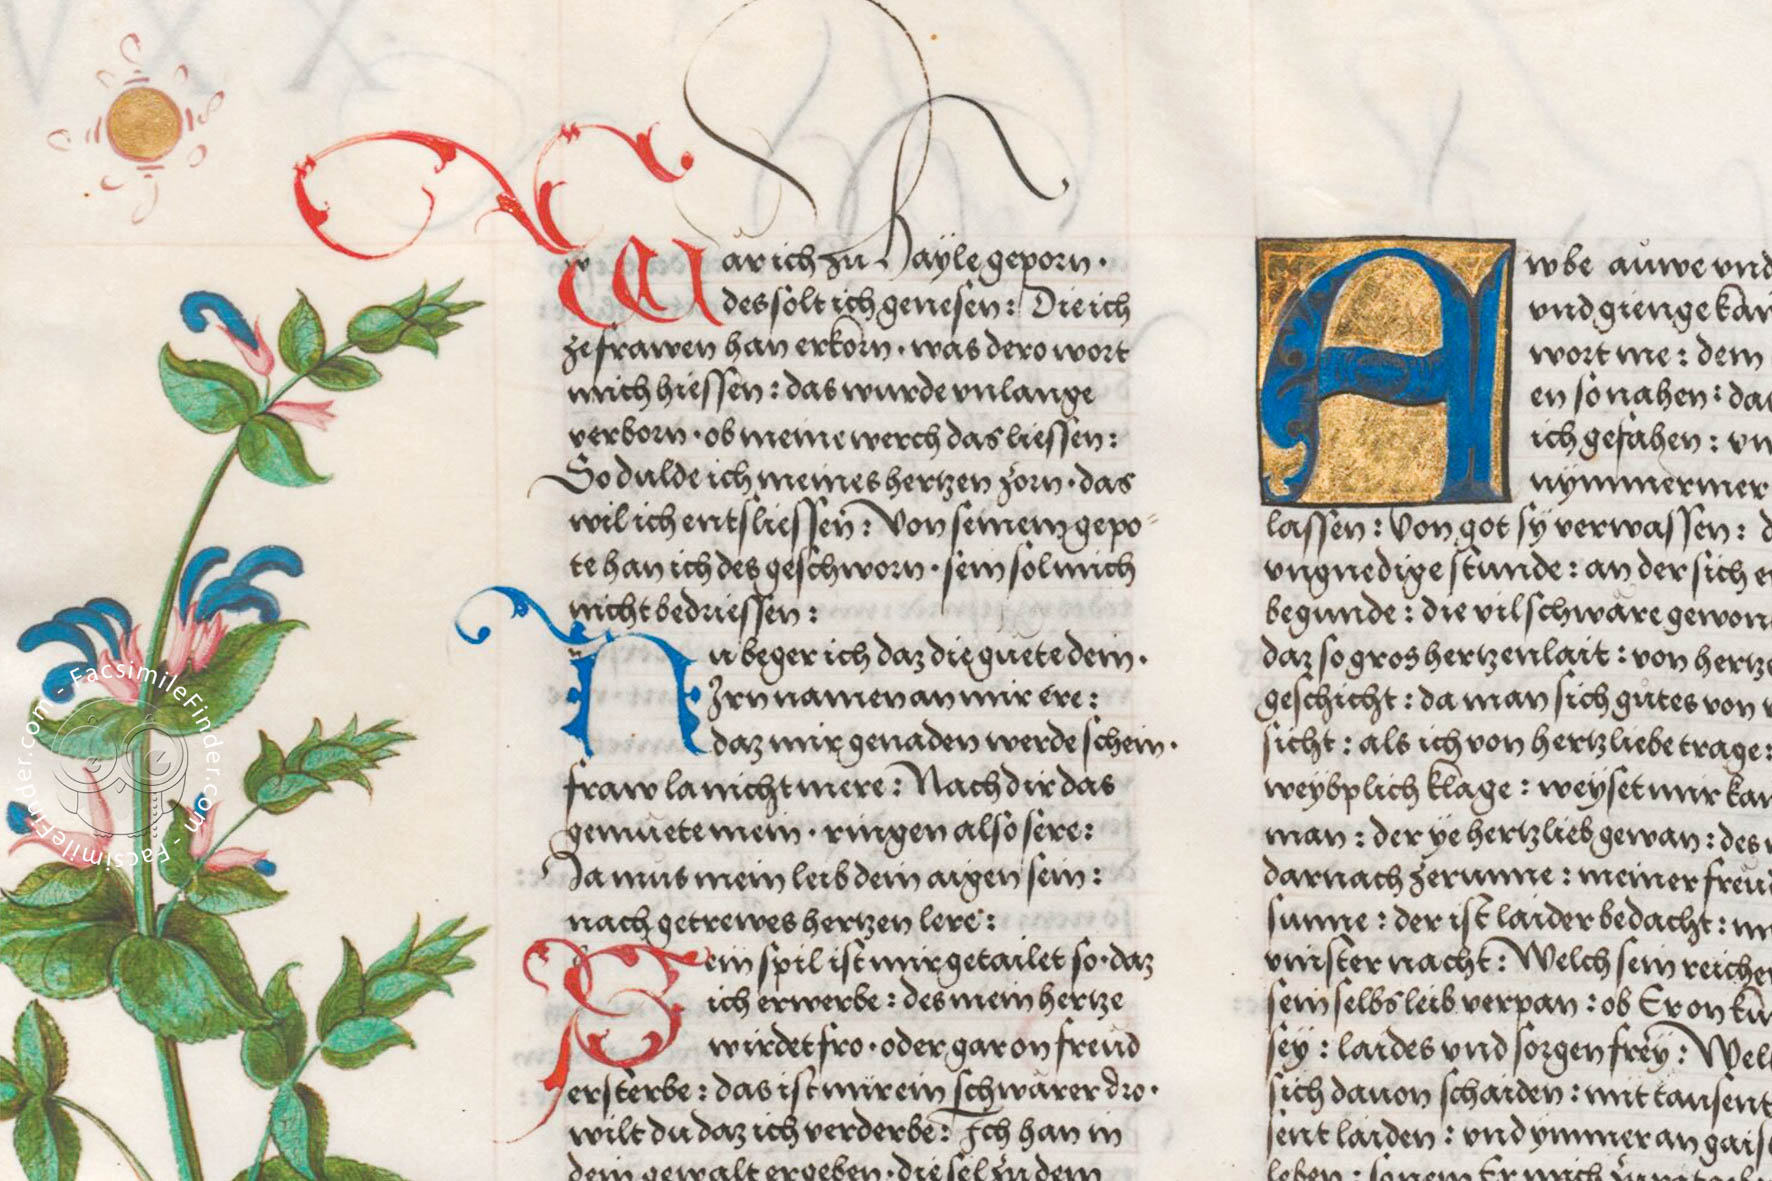 War ich zu Hayle geporn·
des solt ich genesen: Die ich
ze frawen han erkorn· was dero wort
mich hiessen: das wurde vnlange
verborn· ob meine werch das liessen:
So dulde ich meines hertzen zorn· das
wil ich entsliessen: Von seinem gepo-
te han ich des geschworn· sein sol mich
nicht bedriessen:
Nu beger ich daz die guete dein·
Irn namen an mir ere:
daz mir genaden werde schein·
fraw la nicht mere: Nach dir das
gemuete mein· ringen also sere:
Ja mus mein leib dein aigen sein:
nach getrewes hertzen lere:
Ein spil ist mir getailet so· daz
ich erwerbe: des mein hertze
wirdet fro· oder gar on freud
ersterbe: das ist mir ein schwärer dro·
wilt du daz ich verderbe: Ich han in
dem gewalt ergeben· die sel zu dem
Awbe auwe vnd
vnd gienge
wort me: dem
en so nahen:
ich gefahen:
nymmermer
lassen: Von got sy verwassen:
vngnedige stunde: an der sich
begunde: die vil schwäre
daz so gros hertzenlait: von
geschicht: da man sich gutes von
sicht: als ich von hertzliebe trage:
weyplich klage: weyset mir
man: der ye hertzlieb gewan:
darnach zerunne: meiner
sunne: der ist laider bedacht:
vinster nacht: Welch sein
sein selbs leib verpan: ob Er on
sey: laides vnd sorgen frey:
sich dauon schaiden: mit
sent laiden: vnd ymmer an
leben: so nem Er mich
FacsimileFinder.com - FacsimileFinder.com -